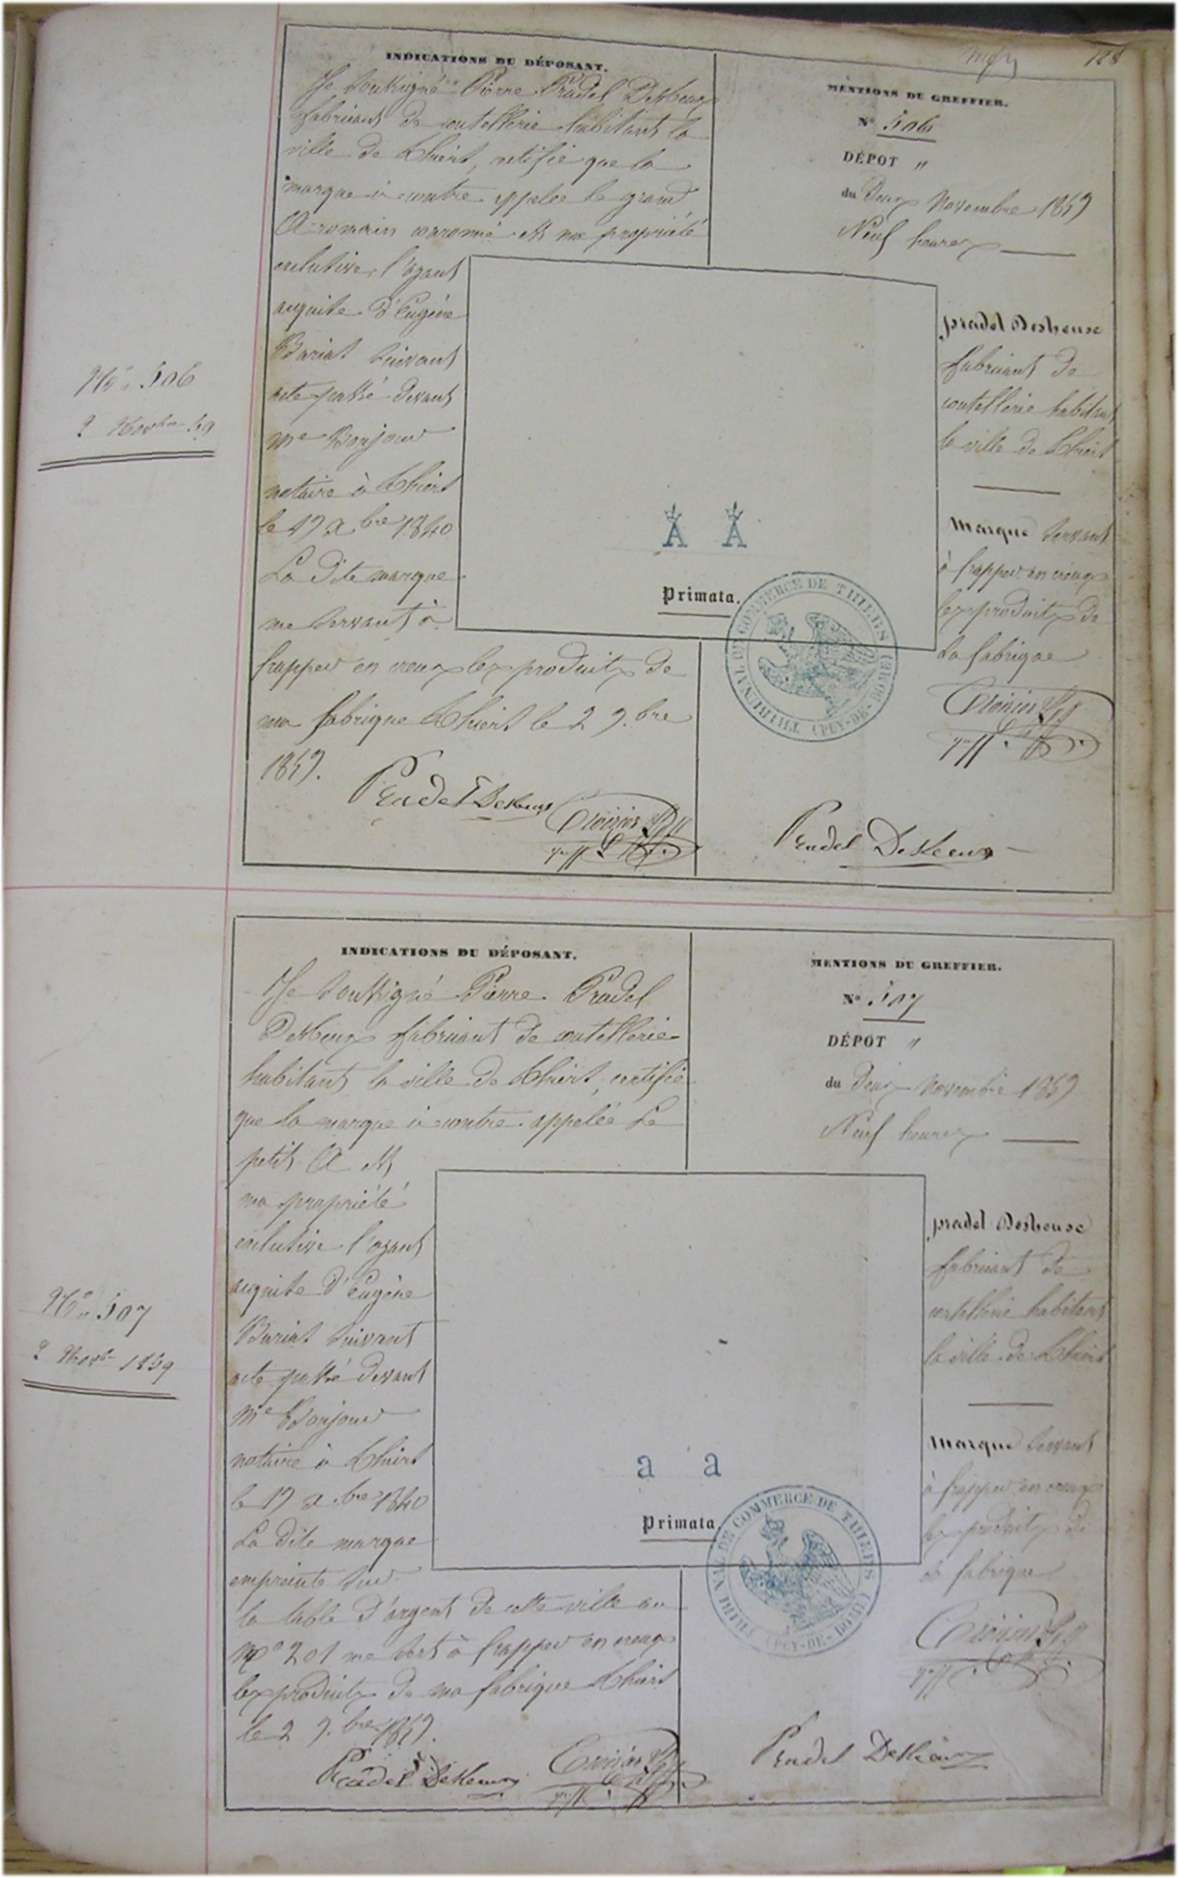 128
INDICATIONS DU DÉPOSANT.
Je soussigné Pierre Pradel Desheux
fabricant de coutellerie habitant la
ville de Thiers, certifie que la
marque ci contre appelée le grand
A romain couronné est ma propriété
exclusive l'ayant
acquise d'Eugène
Bariat suivant
acte passé devant
Me Bonjour
notaire à Thiers
le 17 Xbre 1840
La dite marque
me servant à
frapper en creux les produits de
ma fabrique Thiers le 2 9.bre
1859.
Pradel Desheux
MENTIONS DU GREFFIER.
No 506
DÉPOT "
du Deux Novembre 1859
Neuf heures
pradel Desheux
fabricant de
coutellerie habitant
la ville de Thiers
Marque servant
à frapper en creux
les produits de
la fabrique
Pradel Desheux
A A
Primata.
TRIBUNAL DE COMMERCE DE THIERS (PUY-DE-DOME)
No 506
2 Novbre 59
INDICATIONS DU DÉPOSANT.
Je soussigné Pierre Pradel
Desheux fabricant de coutellerie
habitant la ville de Thiers, certifie
que la marque ci contre appelée Le
petit A est
ma propriété
exclusive l'ayant
acquise d'Eugène
Bariat suivant
acte passé devant
Me Bonjour
notaire à Thiers
le 17 Xbre 1840
La dite marque
empreinte sur
la table d'argent de cette ville au
No 201 me sert à frapper en creux
les produits de ma fabrique Thiers
le 2 9.bre 1859.
Pradel Desheux
MENTIONS DU GREFFIER.
No 507
DÉPOT "
du Deux Novembre 1859
Neuf heures
pradel Desheux
fabricant de
coutellerie habitant
la ville de Thiers
Marque servant
à frapper en creux
les produits de
la fabrique
Pradel Desheux
a a
Primata
TRIBUNAL DE COMMERCE DE THIERS (PUY-DE-DOME)
No 507
2 Novbre 1859